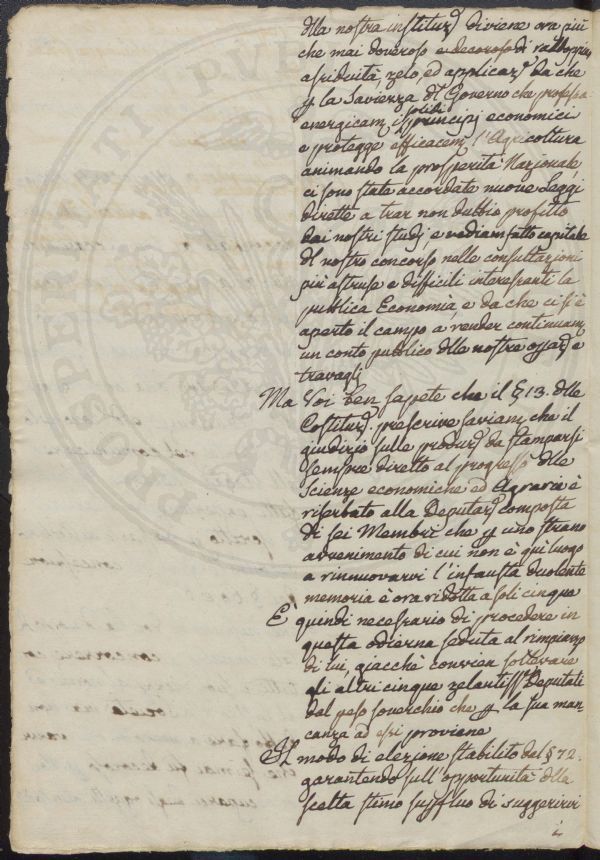 della nostra instituz.e diviene ora più
che mai doveroso e decoroso di raddoppiar
assiduità, zelo, ed applicaz.e da che
p la Saviezza del Governo che professa
energicam.e i solidi principj economici
e protegge efficacem.e l'Agricoltura
animando la prosperità Nazionale,
ci sono state accordate nuove Leggi
dirette a trar non dubbio profitto
dai nostri studj, e vediam fatto capitale
del nostro concorso nelle consultazioni
più astruse e difficili interessanti la
pubblica Economia, e da che ci si è
aperto il campo a render continuam.e
un conto pubblico delle nostre e
travagli
Ma Voi ben sapete che il § 13. delle
Costituz. prescrive saviam.e che il
giudizio sulle produz.i da stamparsi
sempre diretto al progresso delle
scienze economiche ed Agrarie è
riserbato alla Deputaz.e composta
di sei Membri che p uno strano
avvenimento di cui non è qui luogo
a rinnuovarvi l'infausta duolente
memoria è ora ridotta a soli cinque
E' quindi necessario di procedere in
questa odierna seduta al rimpiazzo
di lui, giacchè convien sollevare
gli altri cinque zelantiss.i Deputati
dal peso soverchio che p la sua man-
canza ad essi proviene
Il modo di elezione stabilito del § 72.
garantendo sull'opportunità della
scelta stimo supfluo di suggerirvi
i